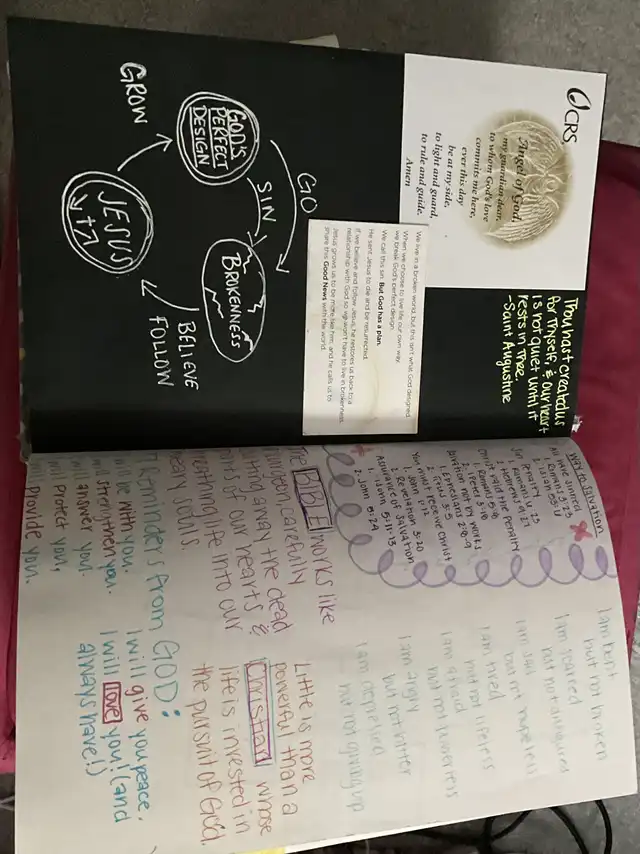 CRS
Angel of God,
my guardian dear,
to whom God's love
commits me here,
ever this day
be at my side,
to light and guard,
to rule and guide.
Amen
Thou hast created us
for Thyself, & our heart
is not quiet until it
rests in Thee.
-Saint Augustine
GO
GOD'S
PERFECT
DESIGN
SIN
BROKENNESS
BELIEVE
FOLLOW
JESUS
GROW
We live in a broken world, but this isn't what God designed.
When we choose to live life our own way,
we break God's perfect design.
We call this sin. But God has a plan.
He sent Jesus to die and be resurrected.
If we believe and follow Jesus, he restores us back to a
relationship with God so we won't have to live in brokenness.
Jesus grows us to be more like him, and he calls us to
share this Good News with the world.
Way to Salvation
All have sinned
Sin Penalty
Christ Paid the Penalty
Salvation not by works
1. Ephesians 2:8-9
2. Titus 3:5
You must receive Christ
2. Revelation 3:20
Assurance of salvation
1. 1 John 5:11-13
2. John 5:24
I am bent
but not broken
I am scarred
but not
I am sad
but not hopeless
I am tired
but not lifeless
I am afraid
but not powerless
I am angry
but not bitter
I am depressed
but not giving up
The BIBLE works like
carefully
cutting away the dead
parts of our hearts &
breathing life into our
souls.
Little is more
powerful than a
Christian whose
life is invested in
the pursuit of God.
Reminders from GOD:
be with you.
will strengthen you.
will answer you.
will Protect you.
will Provide you.
I will give you peace.
I will love you! (and
always have!)